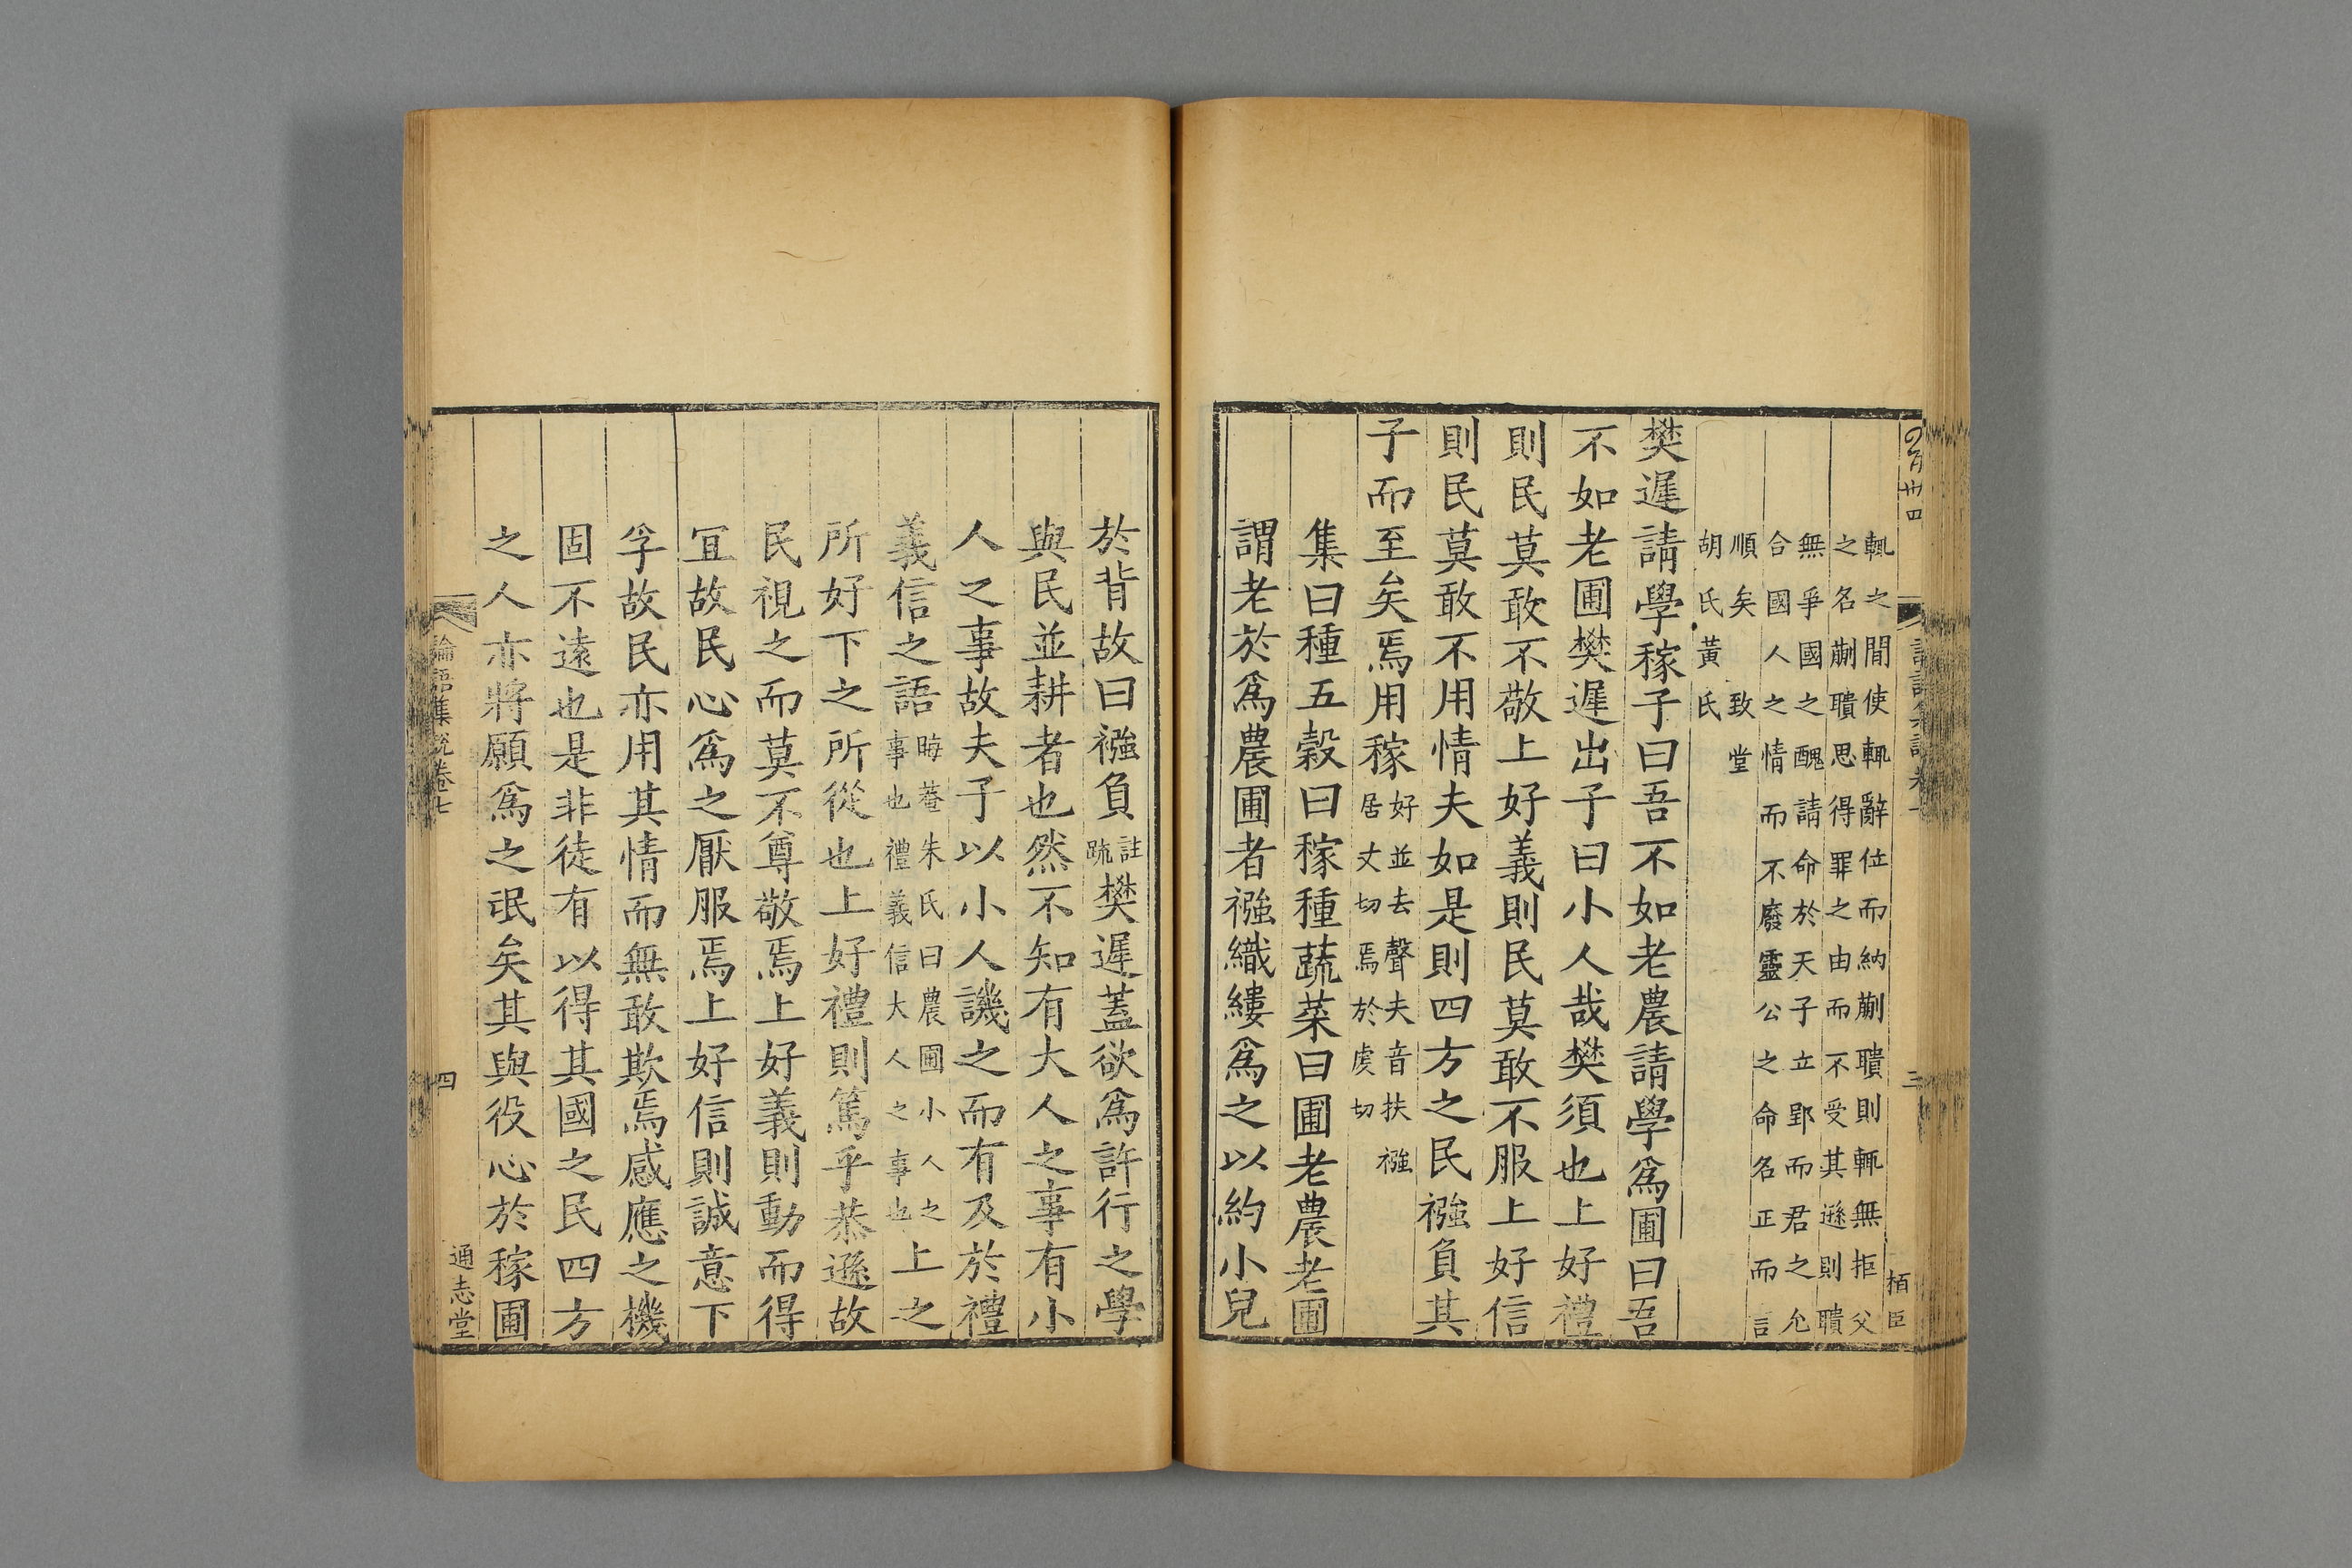 輒之間使輒辭位而納蒯聵則輒無拒父
之名蒯聵思得罪之由而不受其遜則聵
無爭國之醜請命於天子立郢而君之允
合國人之情而不廢靈公之命名正而言
順矣致堂
胡氏黃氏
樊遲請學稼子曰吾不如老農請學爲圃曰吾
不如老圃樊遲出子曰小人哉樊須也上好禮
則民莫敢不敬上好義則民莫敢不服上好信
則民莫敢不用情夫如是則四方之民襁負其
子而至矣焉用稼
好並去聲夫音扶襁
居丈切焉於虔切
集曰種五榖曰稼種蔬菜曰圃老農老圃
謂老於爲農圃者襁織縷爲之以約小兒
三
栢臣
於背故曰襁負
註
䟽
樊遲蓋欲爲許行之學
與民並耕者也然不知有大人之事有小
人之事故夫子以小人譏之而有及於禮
義信之語
晦菴朱氏曰農圃小人之
事也禮義信大人之事也
上之
所好下之所從也上好禮則篤乎恭遜故
民視之而莫不尊敬焉上好義則動而得
冝故民心爲之厭服焉上好信則誠意下
孚故民亦用其情而無敢欺焉感應之機
固不遠也是非徒有以得其國之民四方
之人亦將願爲之氓矣其與役心於稼圃
論語集説卷七
四
通志堂